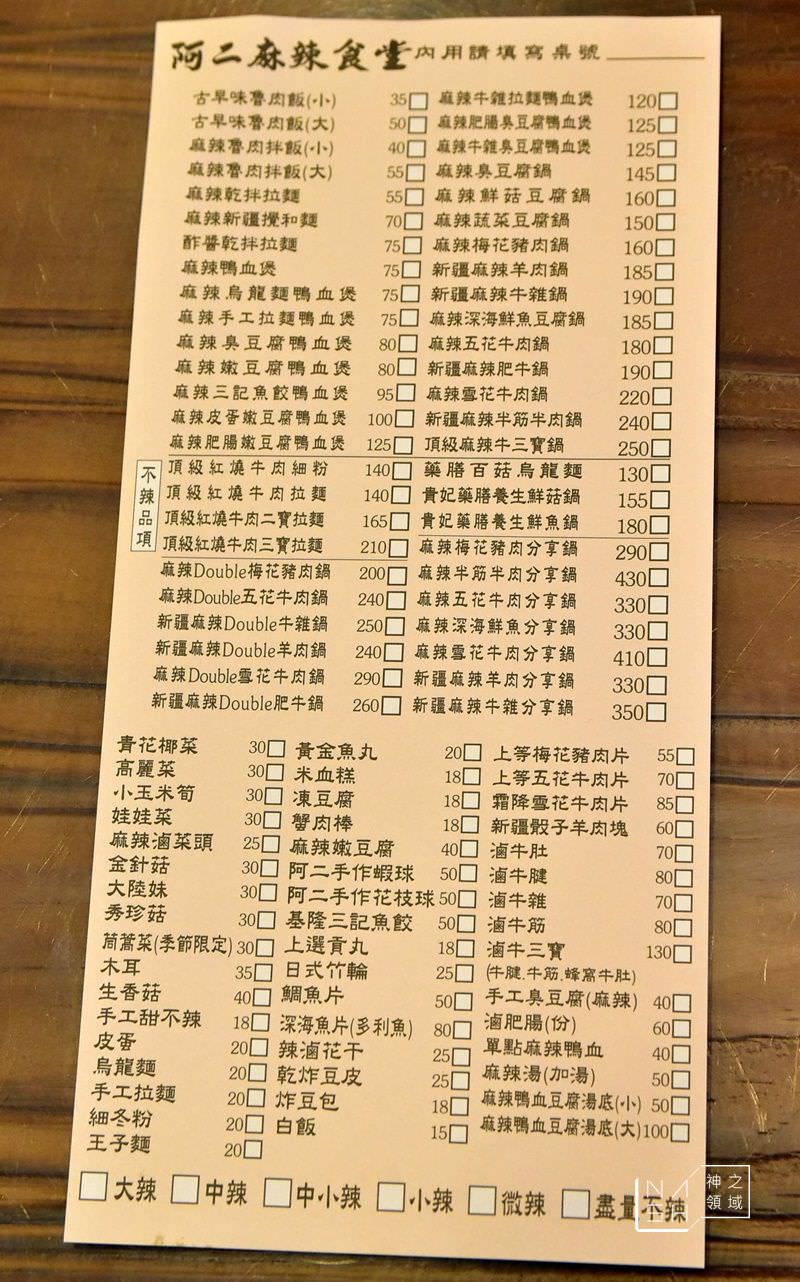 阿二麻辣食堂 內用請填寫桌號
古早味魯肉飯(小) 35 麻辣牛雜拉麵鴨血煲 120
古早味魯肉飯(大) 50 麻辣肥腸臭豆腐鴨血煲 125
麻辣魯肉拌飯(小) 40 麻辣牛雜臭豆腐鴨血煲 125
麻辣魯肉拌飯(大) 55 麻辣臭豆腐鍋 145
麻辣乾拌拉麵 55 麻辣鮮菇豆腐鍋 160
麻辣新疆攪和麵 70 麻辣蔬菜豆腐鍋 150
酢醬乾拌拉麵 75 麻辣梅花豬肉鍋 160
麻辣鴨血煲 75 新疆麻辣羊肉鍋 185
麻辣烏龍麵鴨血煲 75 新疆麻辣牛雜鍋 190
麻辣手工拉麵鴨血煲 75 麻辣深海鮮魚豆腐鍋 185
麻辣臭豆腐鴨血煲 80 麻辣五花牛肉鍋 180
麻辣嫩豆腐鴨血煲 80 新疆麻辣肥牛鍋 190
麻辣三記魚餃鴨血煲 95 麻辣雪花牛肉鍋 220
麻辣皮蛋嫩豆腐鴨血煲 100 新疆麻辣半筋半肉鍋 240
麻辣肥腸嫩豆腐鴨血煲 125 頂級麻辣牛三寶鍋 250
不辣品項
頂級紅燒牛肉細粉 140 藥膳百菇烏龍麵 130
頂級紅燒牛肉拉麵 140 貴妃藥膳養生鮮菇鍋 155
頂級紅燒牛肉二寶拉麵 165 貴妃藥膳養生鮮魚鍋 180
頂級紅燒牛肉三寶拉麵 210 麻辣梅花豬肉分享鍋 290
麻辣Double梅花豬肉鍋 200 麻辣半筋半肉分享鍋 430
麻辣Double五花牛肉鍋 240 麻辣五花牛肉分享鍋 330
新疆麻辣Double牛雜鍋 250 麻辣深海鮮魚分享鍋 330
新疆麻辣Double羊肉鍋 240 麻辣雪花牛肉分享鍋 410
麻辣Double雪花牛肉鍋 290 新疆麻辣羊肉分享鍋 330
新疆麻辣Double肥牛鍋 260 新疆麻辣牛雜分享鍋 350
青花椰菜 30 黃金魚丸 20 上等梅花豬肉片 55
高麗菜 30 米血糕 18 上等五花牛肉片 70
小玉米筍 30 凍豆腐 18 霜降雪花牛肉片 85
娃娃菜 30 蟹肉棒 18 新疆骰子羊肉塊 60
麻辣滷菜頭 25 麻辣嫩豆腐 40 滷牛肚 70
金針菇 30 阿二手作蝦球 50 滷牛腱 80
大陸妹 30 阿二手作花枝球 50 滷牛雜 70
秀珍菇 30 基隆三記魚餃 50 滷牛筋 80
茼蒿菜(季節限定) 30 上選貢丸 18 滷牛三寶 130
木耳 35 日式竹輪 25 (牛腱.牛筋.蜂窩牛肚)
生香菇 40 鯛魚片 50 手工臭豆腐(麻辣) 40
手工甜不辣 18 深海魚片(多利魚) 80 滷肥腸(份) 60
皮蛋 20 辣滷花干 25 單點麻辣鴨血 40
烏龍麵 20 乾炸豆皮 25 麻辣湯(加湯) 50
手工拉麵 20 炸豆包 18 麻辣鴨血豆腐湯底(小) 50
細冬粉 20 白飯 15 麻辣鴨血豆腐湯底(大) 100
王子麵 20
大辣 中辣 中小辣 小辣 微辣 盡量不辣
神之領域